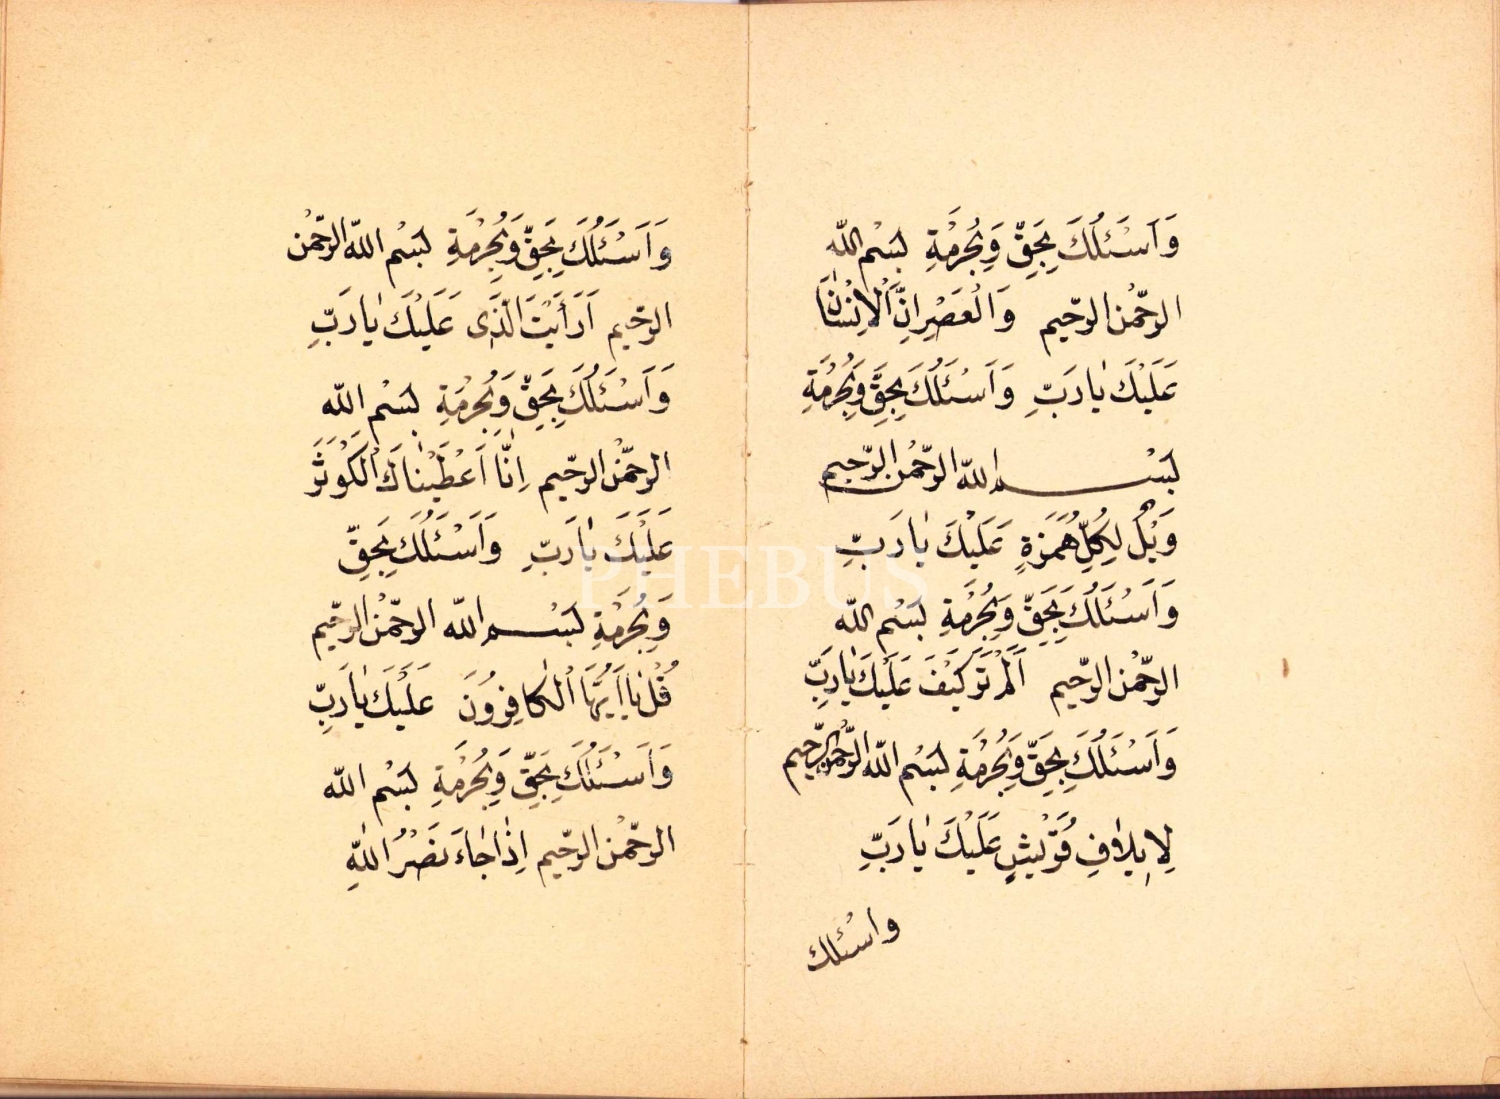 وَاَسْئَلُكَ بِحَقِّ وَبِحُرْمَةِ بِسْمِ اللّٰهِ
الرَّحْمٰنِ الرَّحِيمِ وَالْعَصْرِ اِنَّ الْاِنْسَانَ
عَلَيْكَ يٰارَبِّ وَاَسْئَلُكَ بِحَقِّ وَبِحُرْمَةِ
بِسْمِ اللّٰهِ الرَّحْمٰنِ الرَّحِيمِ
وَيْلٌ لِكُلِّ هُمَزَةٍ عَلَيْكَ يٰارَبِّ
وَاَسْئَلُكَ بِحَقِّ وَبِحُرْمَةِ بِسْمِ اللّٰهِ
الرَّحْمٰنِ الرَّحِيمِ اَلَمْ تَرَ كَيْفَ عَلَيْكَ يٰارَبِّ
وَاَسْئَلُكَ بِحَقِّ وَبِحُرْمَةِ بِسْمِ اللّٰهِ الرَّحْمٰنِ الرَّحِيمِ
لِاِيلَافِ قُرَيْشٍ عَلَيْكَ يٰارَبِّ
واسْئلك
وَاَسْئَلُكَ بِحَقِّ وَبِحُرْمَةِ بِسْمِ اللّٰهِ الرَّحْمٰنِ
الرَّحِيمِ اَرَأَيْتَ الَّذِى عَلَيْكَ يٰارَبِّ
وَاَسْئَلُكَ بِحَقِّ وَبِحُرْمَةِ بِسْمِ اللّٰهِ
الرَّحْمٰنِ الرَّحِيمِ اِنَّا اَعْطَيْنَاكَ الْكَوْثَرَ
عَلَيْكَ يٰارَبِّ وَاَسْئَلُكَ بِحَقِّ
وَبِحُرْمَةِ بِسْمِ اللّٰهِ الرَّحْمٰنِ الرَّحِيمِ
قُلْ يٰااَيُّهَا الْكَافِرُونَ عَلَيْكَ يٰارَبِّ
وَاَسْئَلُكَ بِحَقِّ وَبِحُرْمَةِ بِسْمِ اللّٰهِ
الرَّحْمٰنِ الرَّحِيمِ اِذٰا جٰاءَ نَصْرُ اللّٰهِ
PHEBUS